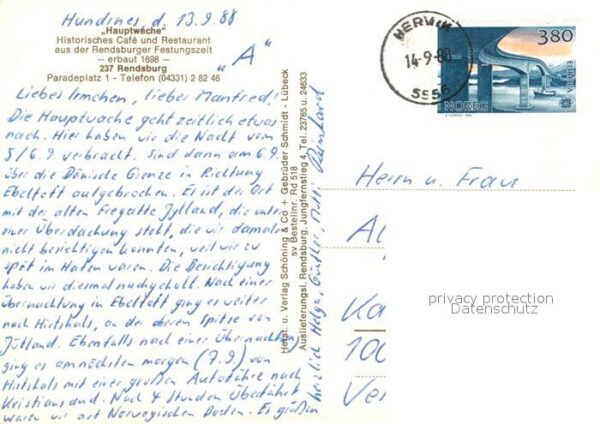 Hundnes d. 13.9.88
„Hauptwache“
Historisches Café und Restaurant
aus der Rendsburger Festungszeit
– erbaut 1698 –
237 Rendsburg
Paradeplatz 1 - Telefon (04331) 2 82 46
„A“
Liebes Irmchen, lieber Manfred!
Die Hauptwache geht zeitlich etwas
nach. Hier haben wir die Nacht vom
5/6.9. verbracht. Sind dann am 6.9.
über die Dänische Grenze in Richtung
Ebeltoft aufgebrochen. Es ist der Ort
mit der alten Fregatte Jylland, die unter
einer Überdachung steht, die wir damals
nicht besichtigen konnten, weil wir zu
spät im Hafen waren. Die Besichtigung
haben wir diesmal nachgeholt. Nach einer
Übernachtung in Ebeltoft ging es weiter
nach Hirtshals, an der oberen Spitze von
Jütland. Ebenfalls nach einer Übernachtung
ging es am nächsten morgen (7.9.) von
Hirtshals mit einer großen Autofähre nach
Kristiansand. Nach 4 Stunden Überfahrt
waren wir auf Norwegischen Boden. Es grüßen
herzlich Helga, Günther, Reinhard
Herst. u. Verlag Schöning & Co + Gebrüder Schmidt - Lübeck
sv Bestellnr. Rd 518
Auslieferungsl. Rendsburg, Jungfernstieg 4, Tel. 23765 u. 24633
14-9-88
5556
3.80
NOREG
EUROPA
Herrn u. Frau
Al
Ka
100
Ver
privacy protection
Datenschutz